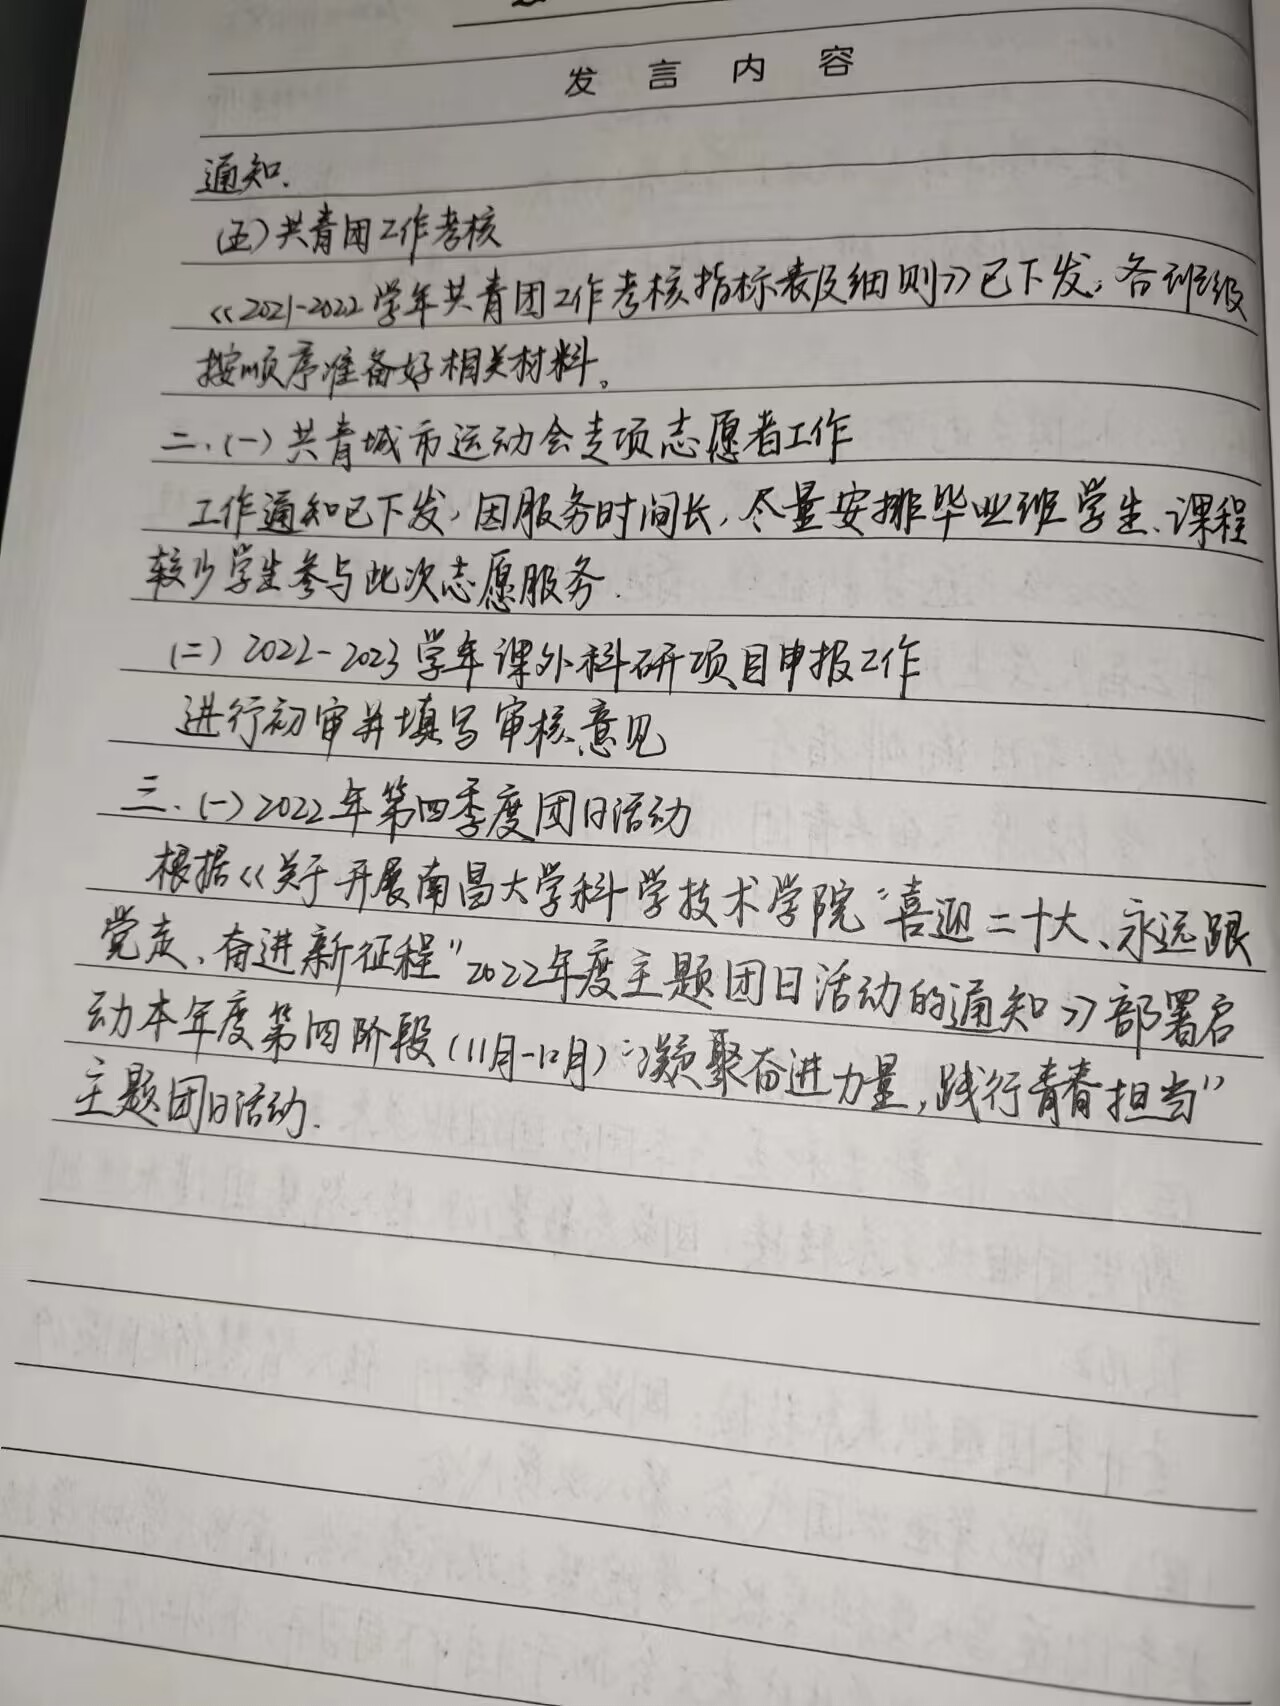 发言内容
通知.
(五)共青团工作考核
《2021-2022学年共青团工作考核指标表及细则》已下发,各班级
按顺序准备好相关材料。
二.(一)共青城市运动会专项志愿者工作
工作通知已下发,因服务时间长,尽量安排毕业班学生、课程
较少学生参与此次志愿服务.
(二)2022-2023学年课外科研项目申报工作
进行初审并填写审核意见
三.(一)2022年第四季度团日活动
根据《关于开展南昌大学科学技术学院“喜迎二十大、永远跟
党走、奋进新征程”2022年度主题团日活动的通知》部署启
动本年度第四阶段(11月-12月)“凝聚奋进力量,践行青春担当”
主题团日活动.